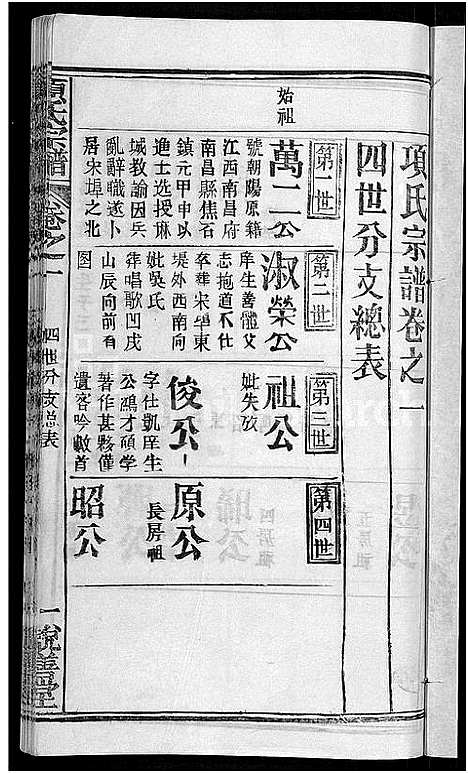 項氏宗譜卷之一
四世分支總表
始祖
第一世
萬二公
號朝陽原籍
江西南昌府
南昌縣焦石
鎮元甲申以
進士选授麻
城教諭因兵
亂辭職遂卜
居宋埠之北
第二世
淑榮公
庠生善體父
志抱道不仕
卒葬宋埠東
堤外西南向
妣吳氏
葬唱歌凹戌
山辰向前有
图
第三世
祖公
妣失攷
俊公
字仕凱庠生
公鴻才碩学
著作甚夥僅
遺客吟數首
第四世
原公
長房祖
昭公
項氏宗譜
卷之一
四世分支总表
一